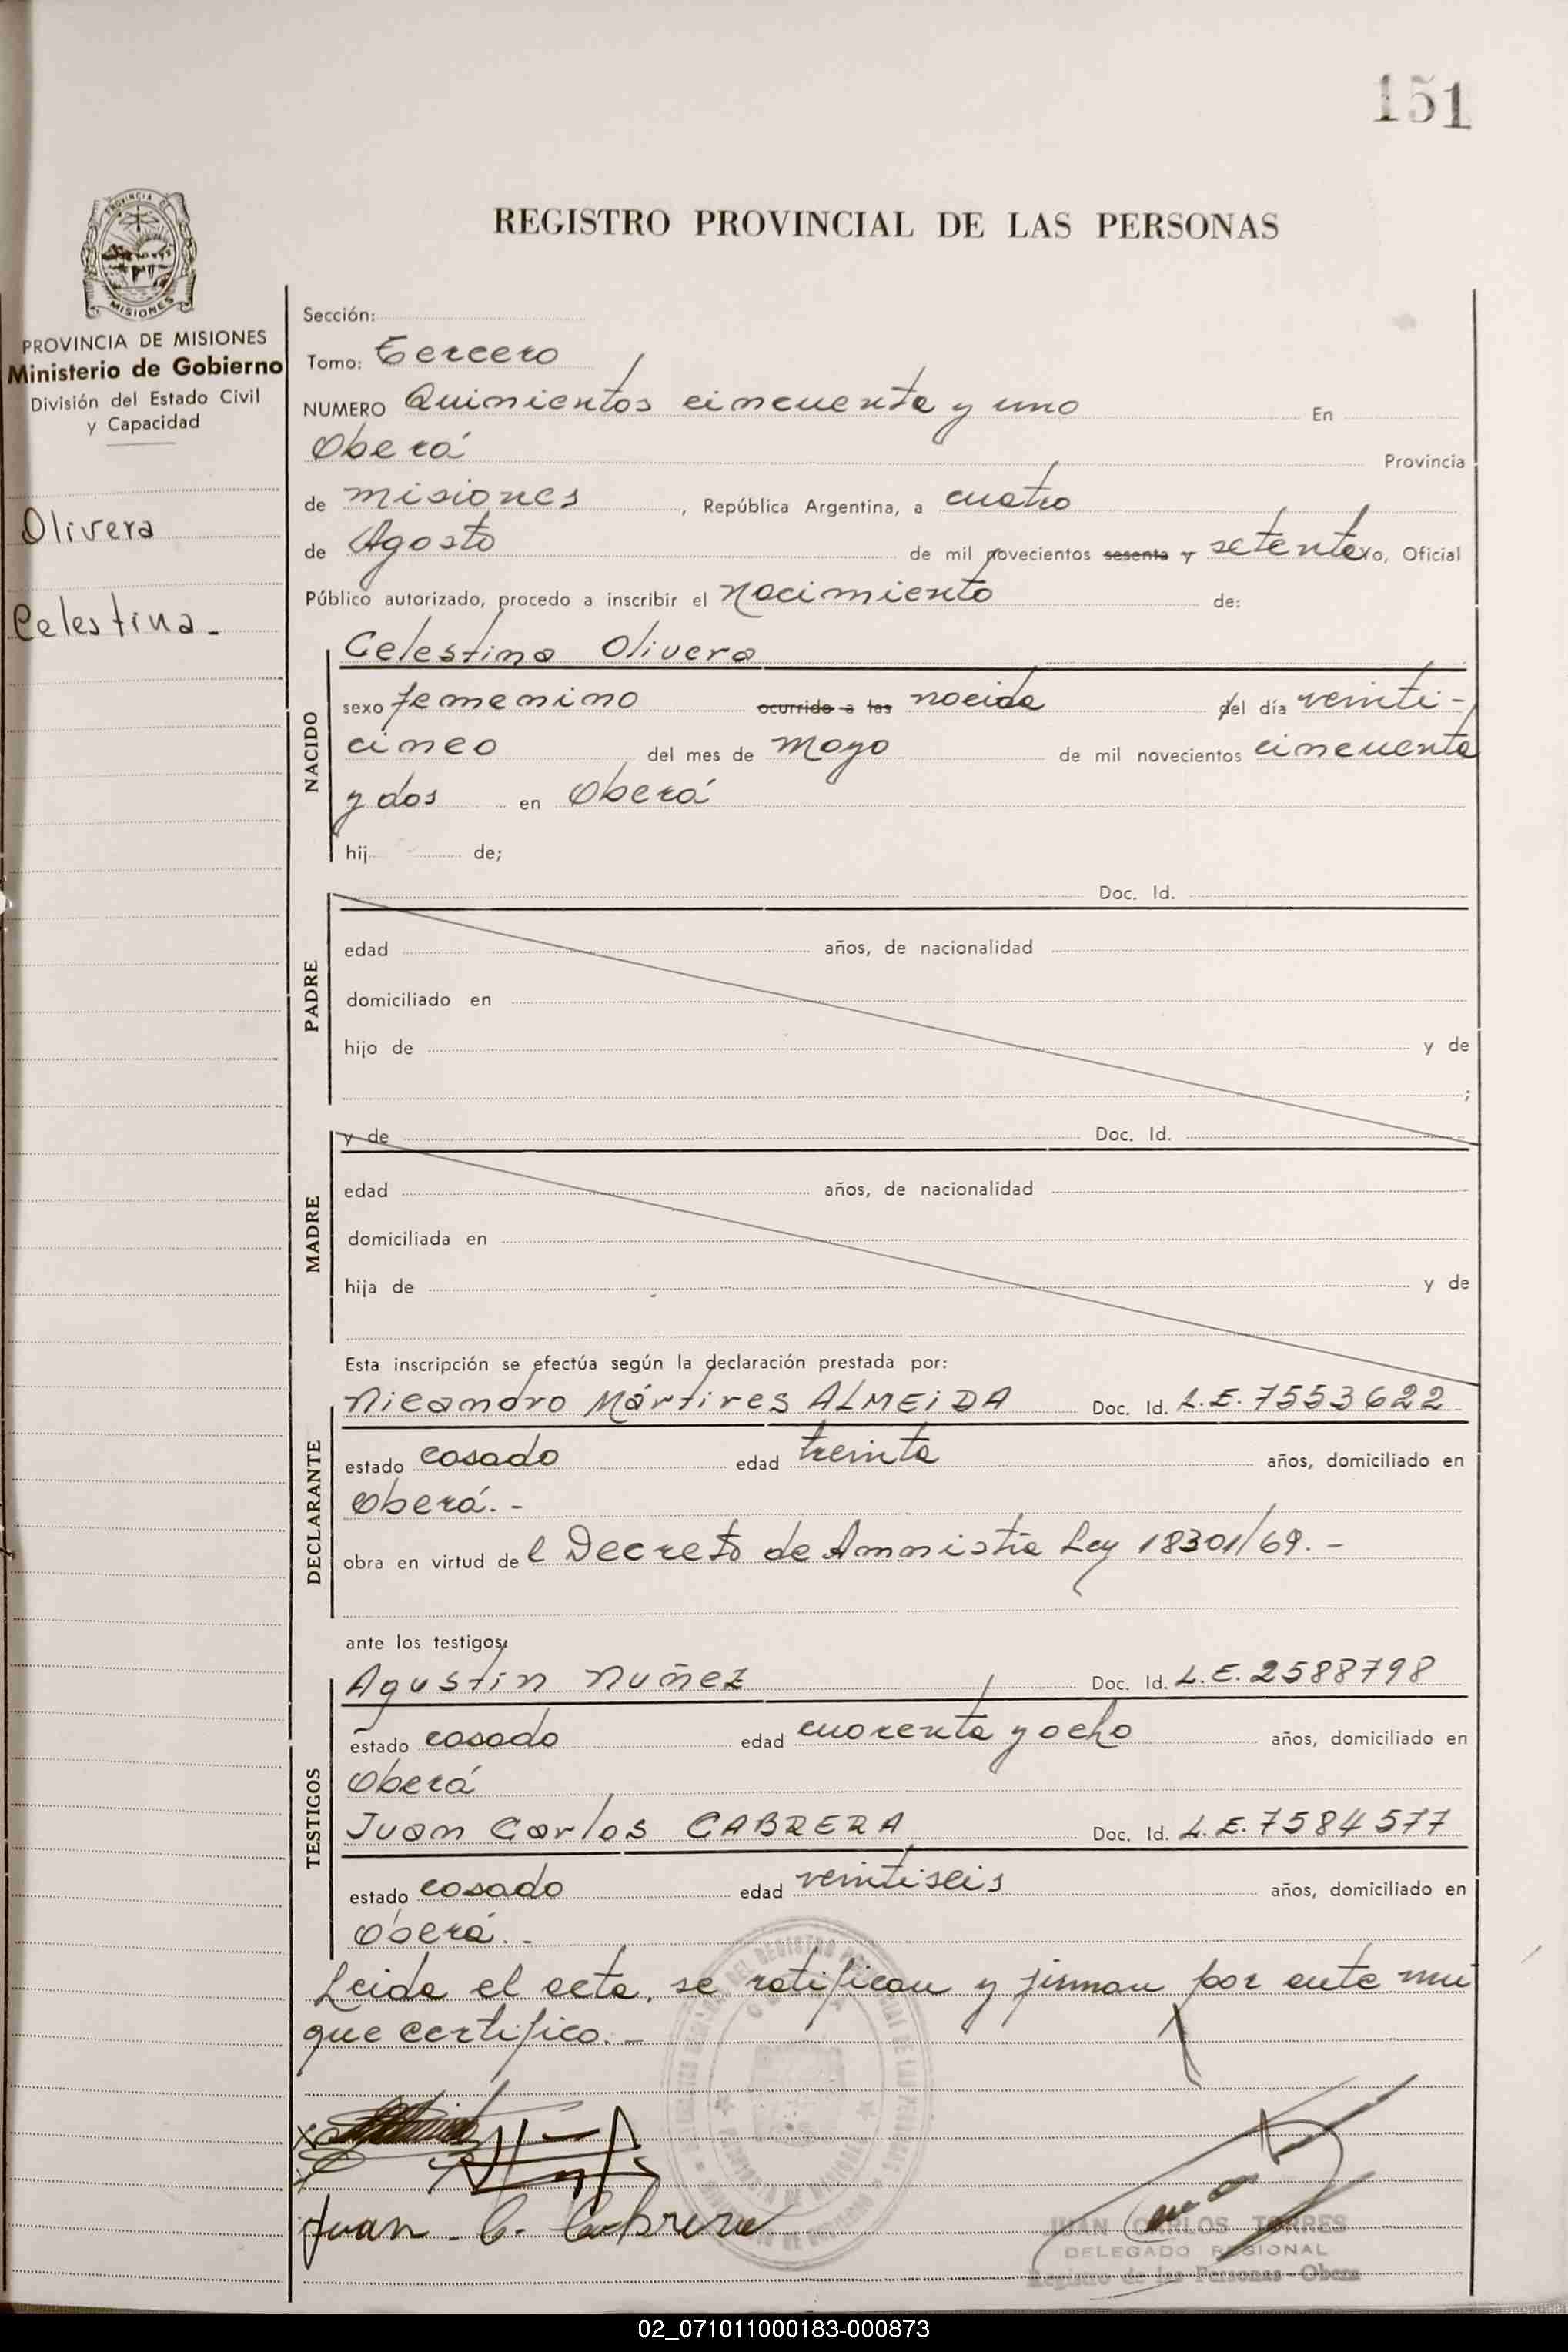 151
PROVINCIA DE
MISIONES
REGISTRO PROVINCIAL DE LAS PERSONAS
PROVINCIA DE MISIONES
Ministerio de Gobierno
División del Estado Civil
y Capacidad
Olivera
Celestina.-
Sección:
Tomo: Tercero
NUMERO Quinientos cincuenta y uno En
Oberá Provincia
de misiones, República Argentina, a cuatro
de Agosto de mil novecientos sesenta y setenta yo, Oficial
Público autorizado, procedo a inscribir el Nacimiento de:
Celestina Olivera
NACIDO
sexo femenino ocurrido a las nacida del día veinti-
cinco del mes de Mayo de mil novecientos cincuenta
y dos en Oberá
hij de;
PADRE
Doc. Id.
edad años, de nacionalidad
domiciliado en
hijo de y de
;
MADRE
y de Doc. Id.
edad años, de nacionalidad
domiciliada en
hija de y de
Esta inscripción se efectúa según la declaración prestada por:
DECLARANTE
Nicandro Mártires ALMEIDA Doc. Id. L.E. 7553622
estado casado edad treinta años, domiciliado en
Oberá.-
obra en virtud del Decreto de Amnistia Ley 18301/69.-
ante los testigos:
TESTIGOS
Agustin Nuñez Doc. Id. L.E. 2588798
estado casado edad cuarenta y ocho años, domiciliado en
Oberá
Juan Carlos CABRERA Doc. Id. L.E. 7584577
estado casado edad veintiseis años, domiciliado en
Oberá.-
Leida el acta, se ratifican y firman por ante mi
que certifico.-
Juan C. Cabrera
JUAN CARLOS TORRES
DELEGADO REGIONAL
Registro de las Personas - Obera
02_071011000183-000873